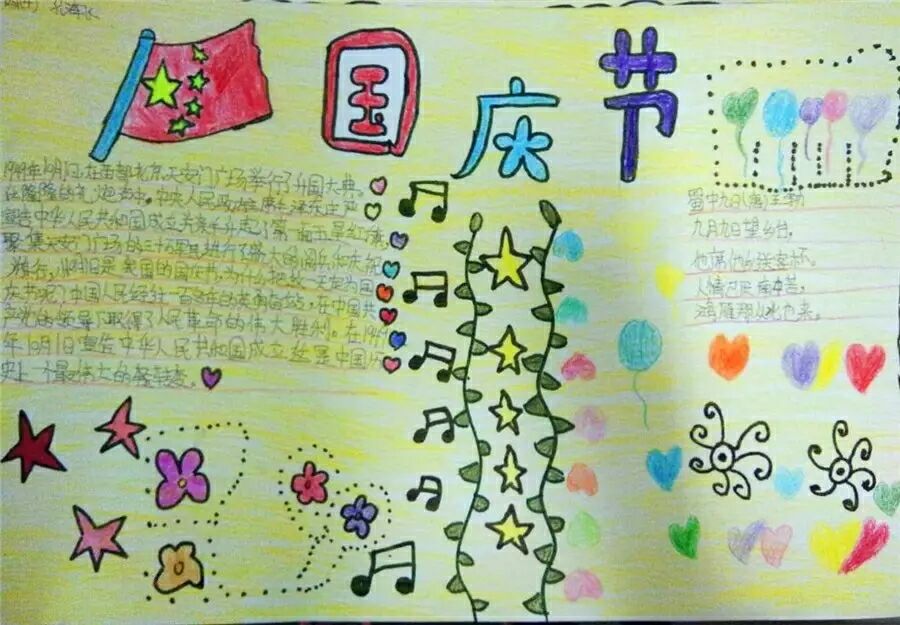 国庆节
1949年10月1日,在首都北京天安门广场举行了开国大典,
在隆隆的礼炮声中,中央人民政府主席毛泽东庄严
宣告中华人民共和国成立并亲手升起了第一面五星红旗。
聚集天安门广场的三十万军民进行了盛大的阅兵和庆祝
游行。
庆节呢?中国人民经过一百多年的英勇奋战,在中国共
产党的领导下,取得了人民革命的伟大胜利。在1949
年10月1日宣告中华人民共和国成立
史上一个最伟大的转变。
蜀中九日 王勃
九月九日望乡台,
他席他乡送客杯。
人情已厌南中苦,
鸿雁那从北地来。